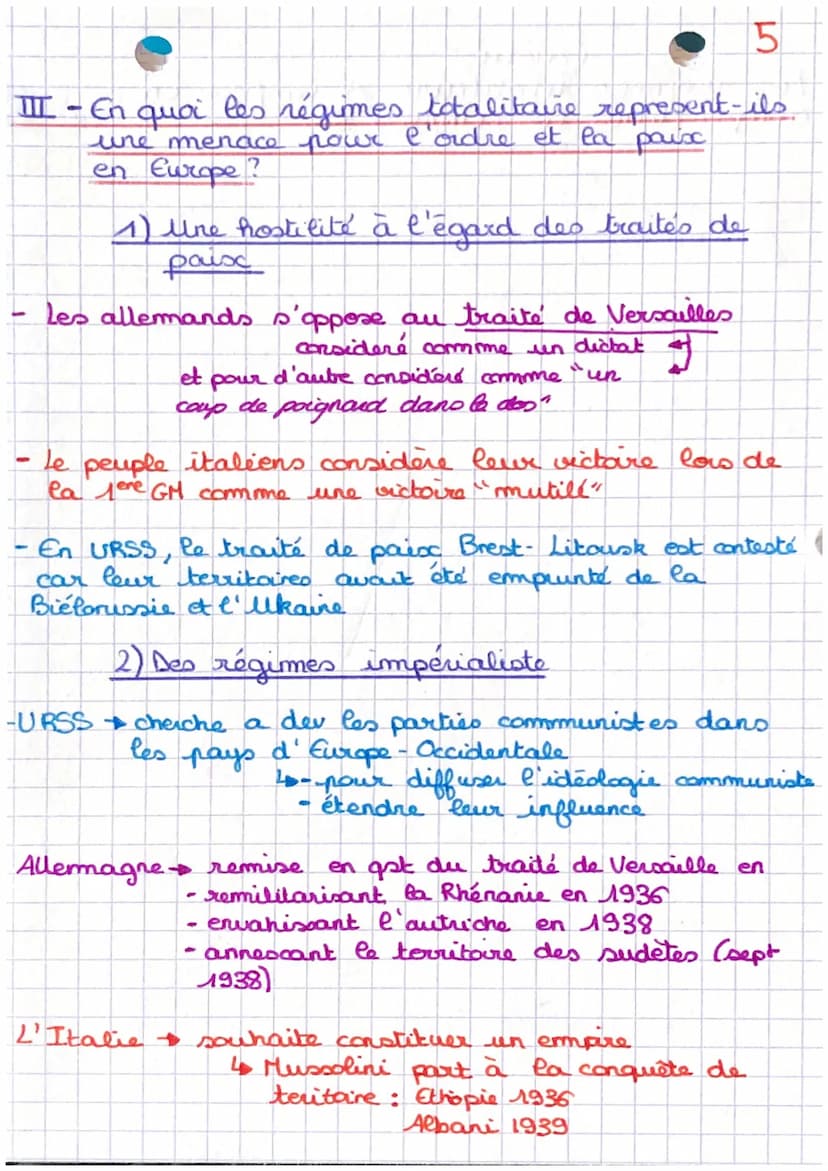 5
III - En quoi les régimes totalitaire represent-ils
une menace pour l'ordre et la paix
en Europe ?
1) Une hostilité à l'égard des traités de
paix
- Les allemands s'oppose au traité de Versailles
consideré comme un dictat
et pour d'autre considéré comme "un
coup de poignard dans le dos"
- Le peuple italiens considère leur victoire lors de
la 1ère GM comme une victoire "mutillé"
- En URSS, le traité de paix Brest-Litousk est contesté
car leur territoires avait été emprunté de la
Biélorussie et l'Ukaine
2) Des régimes impérialiste
-URSS → cherche a dev les partis communistes dans
les pays d'Europe-Occidentale
↳ - pour diffuser l'idéologie communiste
- étendre leur influence
Allemagne → remise en qst du traité de Versaille en
- remilitarisant la Rhénanie en 1936
- envahissant l'autriche en 1938
- annexant le territoire des sudètes (sept
1938)
L'Italie → souhaite constituer un empire
↳ Mussolini part à la conquête de
teritaire : Ethiopie 1936
Albani 1939